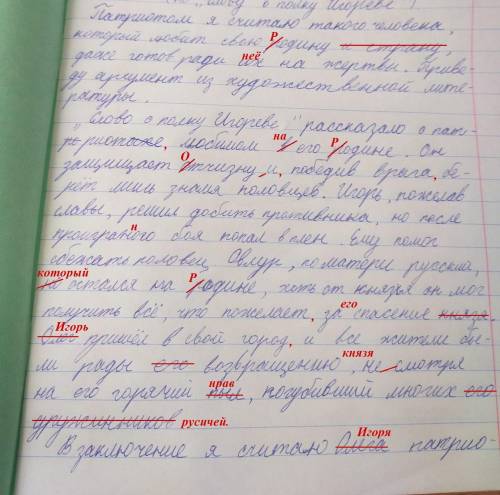 (по "Слову о полку Игореве")
Патриотом я считаю такого человека,
который любит свою Родину и страну,
даже готов ради неё их на жертвы. Приве-
ду аргумент из художественной лите-
ратуры.
„Слово о полку Игореве" рассказало о пат-
риотизме, любимом на его Родине. Он
защищает Отчизну и, победив врага, бе-
рёт лишь знамя половцев. Игорь, пожелав
славы, решил добить противника, но после
проигранного боя попал в плен. Ему помог
сбежать половец Овлур, по матери русский,
который но остался на Родине, хоть от князя он мог
получить всё, что пожелает, за его спасение князя.
Игорь Олег пришёл в свой город, и все жители бы-
ли рады его возвращению князя, не смотря
на его горячий пыл нрав, погубивший многих его
дружинников русичей.
В заключение я считаю Олега Игоря патрио-